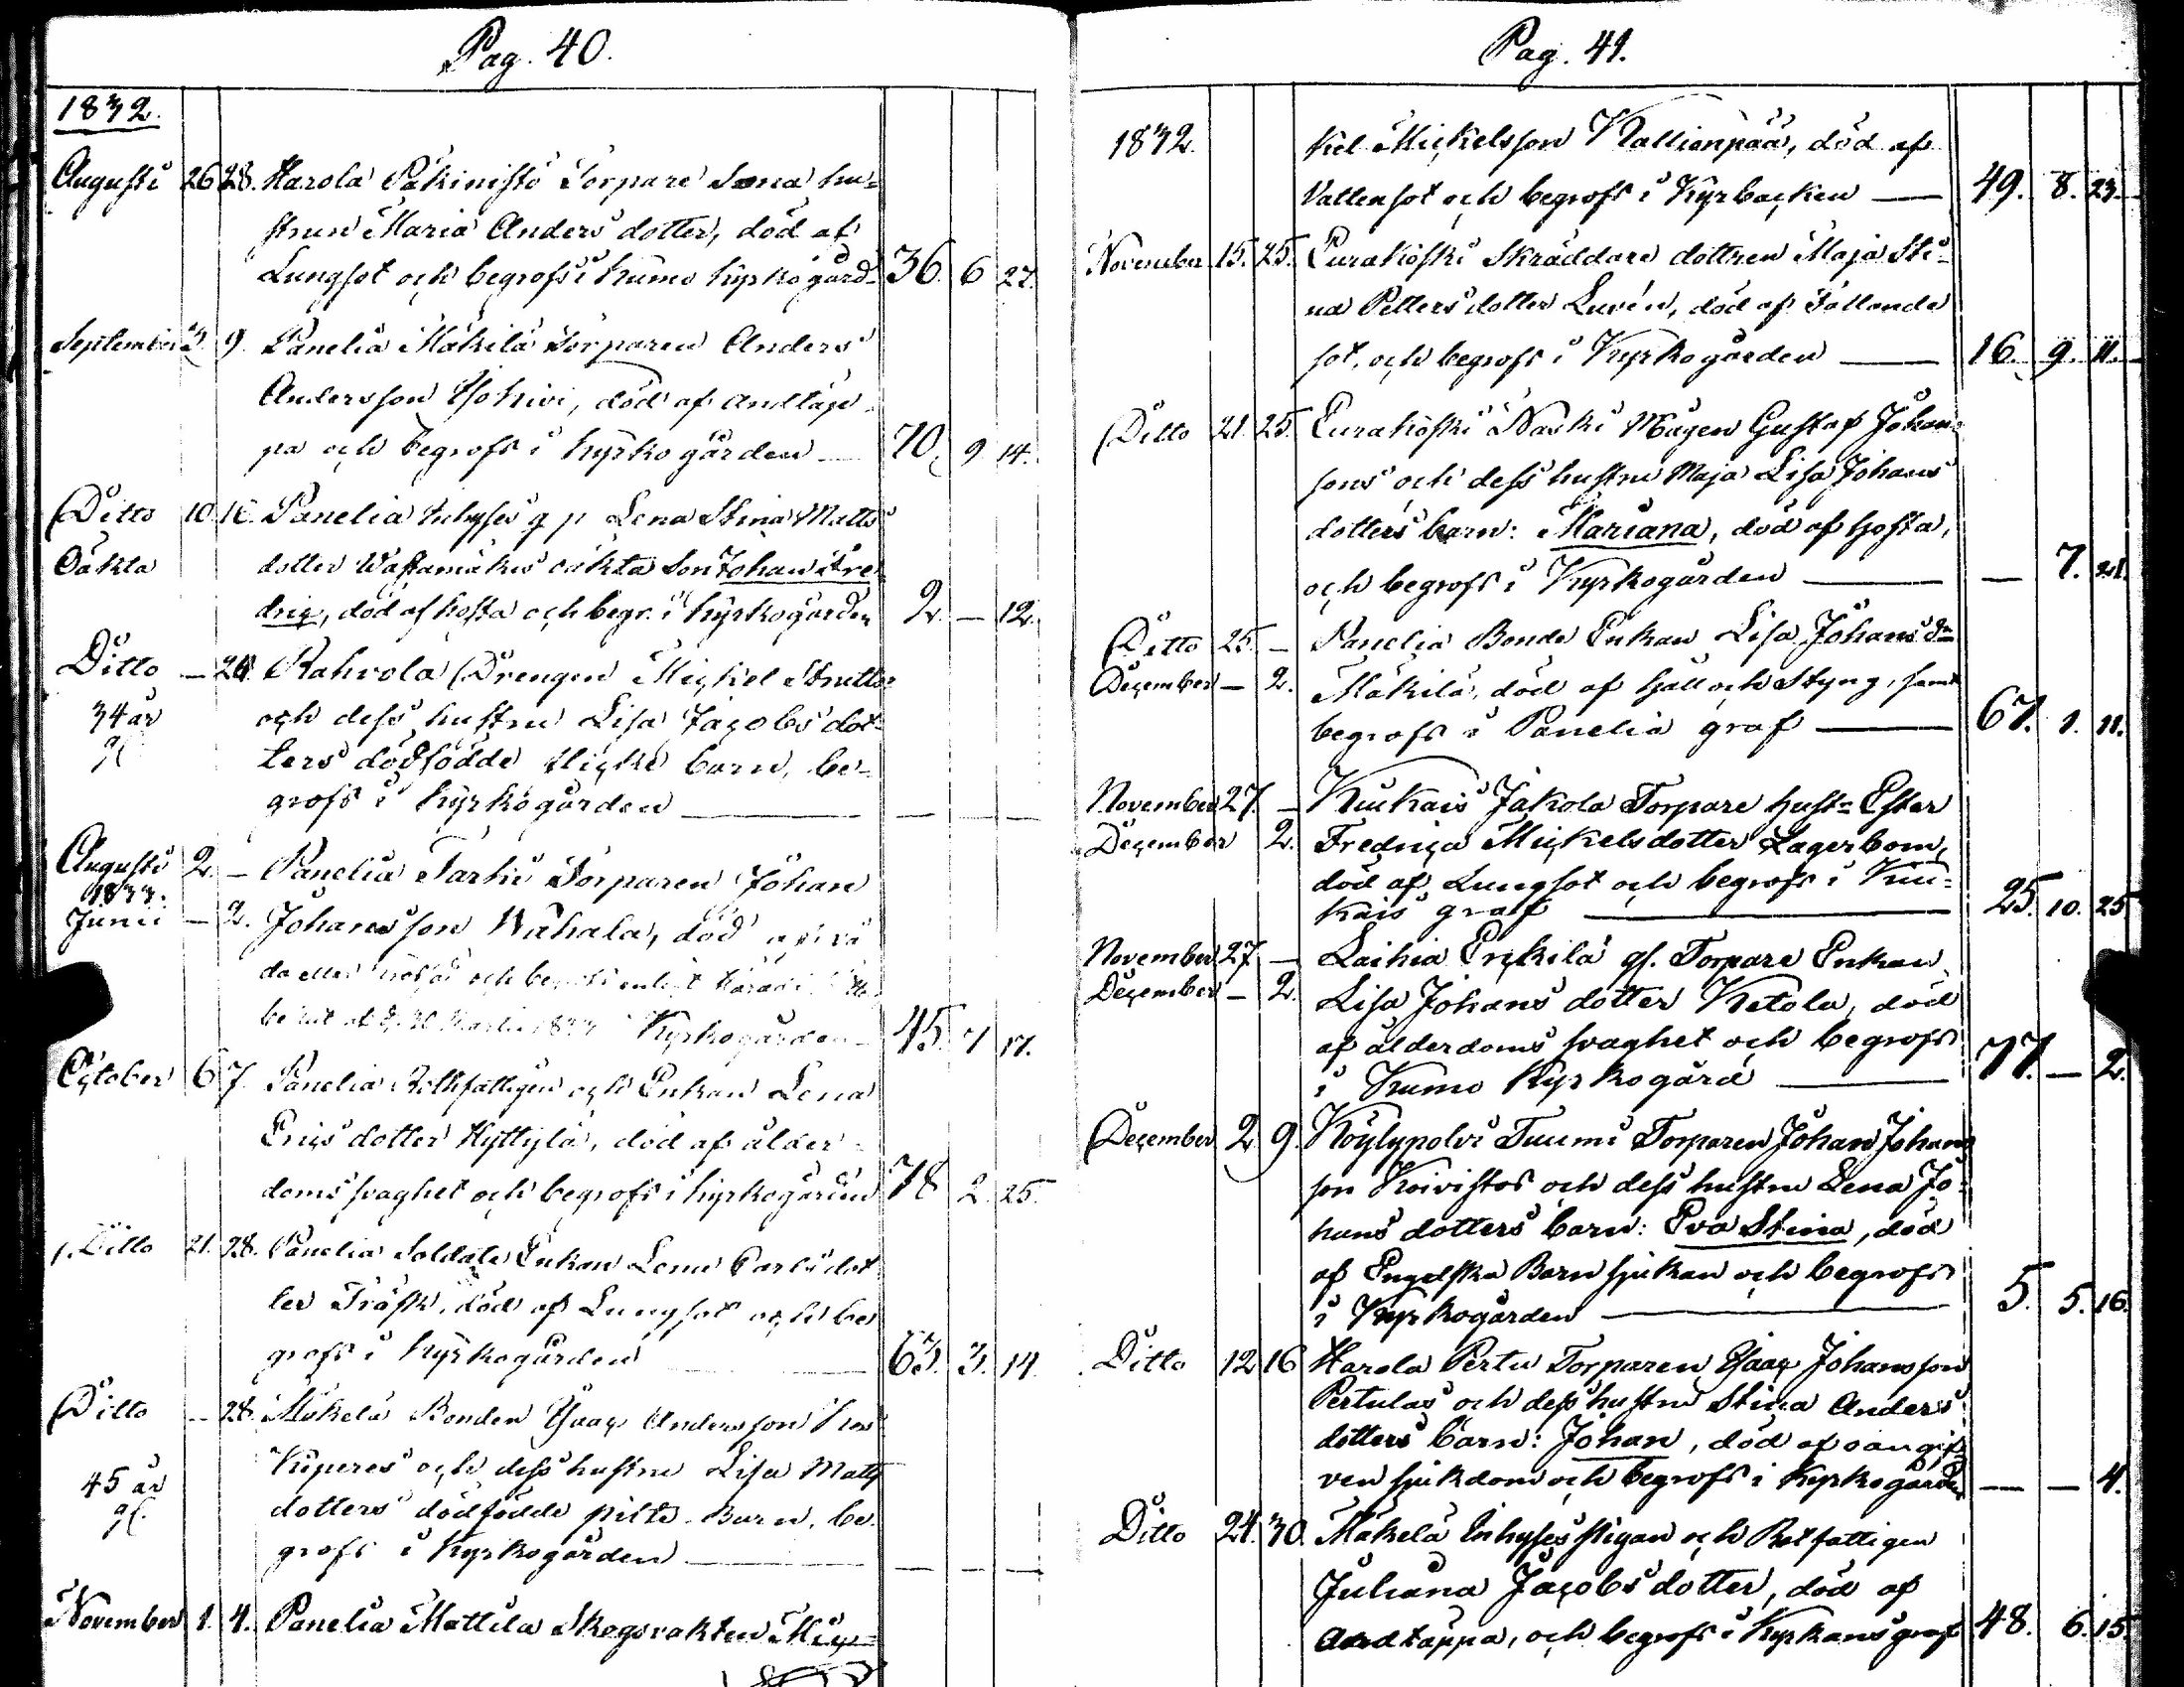 Pag. 40.
1832.
Augusti 26 28. Harola Päkinistö Torpare Sona hu-
strun Maria Anders dotter, död af
Lungsot och begrofs i Kumo kyrkogård 36. 6 27.
September 3. 9. Panelia Mäkilä Torparen Anders
Andersson Yohivi, död af andtäp-
pa och begrofs i kyrkogården 70. 9 14.
Ditto 10. 16. Panelia Inhyses q p Lena Stina Matts
Oäkta dotter Wastamäkis oäkta Son Johan Fre
dric, död af hosta och begr. i kyrkogården 2. — 12.
Ditto — 26. Rahvola Drengen Mickel
34 år och dess hustru Lisa Jacobs dot-
gl. ters dödfödde flicke barn, be-
grofs i kyrkogården — — —
Augusti 2. — Panelia Tarki Torparen Johan
1833.
Junii — 2. Johansson Wähala, död af vå
da eller och begrofs enligt Härads
af d. 30 Martii 1833 i Kyrkogården 45. 7 17.
October 6 7. Panelia Rothfattigen och Enkan Lena
Erics dotter Hyttylä, död af ålder-
doms svaghet och begrofs i kyrkogården 78 2. 25.
Ditto 21. 28. Panelia Soldats Enkan Lena Carls dot
ter Träsk, död af Lungsot och be
grofs i kyrkogården 63. 3. 14
Ditto — 28. Mäkelä Bonden Isaac Andersson
45 år och dess hustru Lisa Matts
gl. dotters dödfödde pilte Barn, be-
grofs i Kyrkogården — — —
November 1. 4. Panelia Mattila Skogsvakten Mic-
Pag. 41.
1832. kel Mickelsson Kallionpää, död af
Vattensot och begrofs i Kyrbacken 49. 8. 23.
November 15. 25. Eurakoski Skräddare dottren Maja Sti-
na Petters dotter Luvén, död af Fallande
sot, och begrofs i Kyrkogården 16. 9. 11.
Ditto 21. 25. Eurakoski Naski Mågen Gustaf Johans
sons och dess hustru Maja Lisa Johans
dotters barn: Mariana, död af hosta,
och begrofs i Kyrkogården — 7. 21.
Ditto 25. — Panelia Bonde Enkan Lisa Johans dr
December — 2. Mäkilä, död af håll och Styng, samt
begrofs i Panelia graf 67. 1. 11.
November 27. — Kiukais Jakola Torpare hust= Ester
December 2. Fredrica Mickelsdotter Lagerbom,
död af Lungsot och begrofs i Kiu-
kais graf 25. 10. 25
November 27. — Laihia Erckilä gl. Torpare Enkan
December — 2. Lisa Johans dotter Ketola, död
af ålderdoms svaghet och begrofs
i Kumo Kyrkogård 77. — 2.
December 2 9. Köylypolvi Tuomi Torparen Johan Johans
son Koivistos och dess hustru Lena Jo-
hans dotters barn: Eva Stina, död
af Engelska Barn sjukan och begrofs
i Kyrkogården 5. 5. 16.
Ditto 12 16 Harola Pertu Torparen Isaac Johansson
Pertulas och dess hustru Stina Anders
dotters barn: Johan, död af oangif
ven sjukdom och begrofs i Kyrkogården — — 4.
Ditto 24. 30. Mäkelä Inhyses pigan och Rotfattigen
Juliana Jacobs dotter, död af
Andtäppa, och begrofs i Kyrkans graf 48. 6. 15.